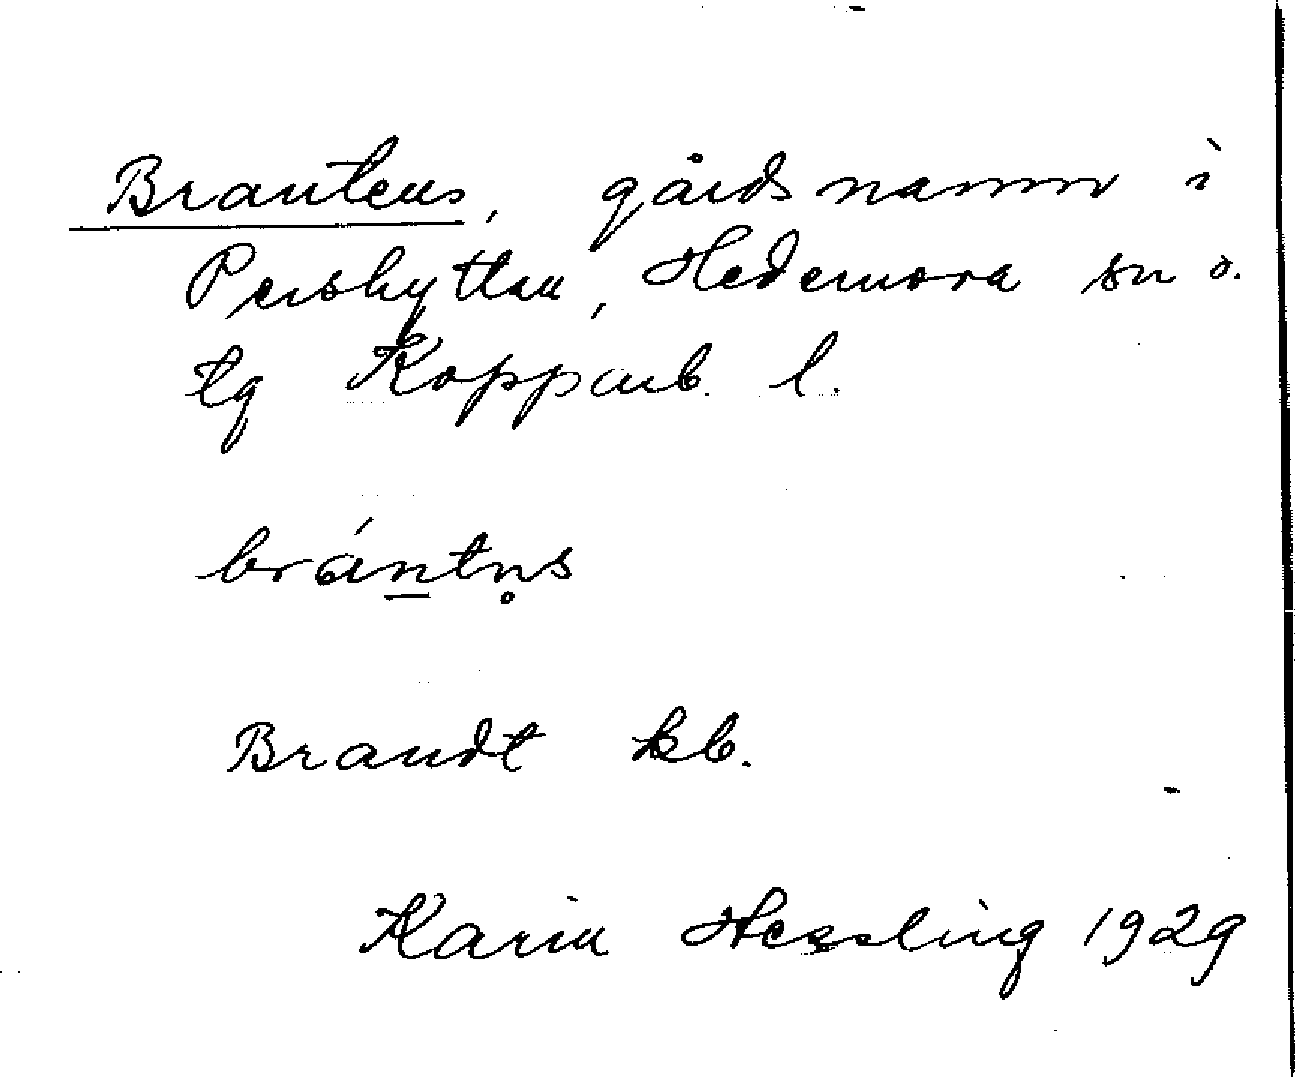 Brantens, gårdsnamn i
Pershyttan, Hedemora sn o.
tg Kopparb. l.
brán̲tn̥s
Brandt kb.
Karin Hessling 1929